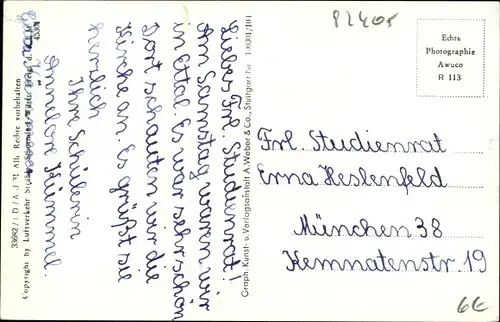 Liebes Frl. Studienrat!
Am Samstag waren wir
in Ettal. Es war sehr schön
Dort schauten wir die
Kirche an. Es grüßt sie
herzlich
Ihre Schülerin
Annelore Kümmel.
33682/
Alle Rechte vorbehalten
Copyright by Luftverkehr
Graph. Kunst- u. Verlagsanstalt A. Weber & Co., Stuttgart
82405
Echte
Photographie
Awuco
R 113
Frl. Studienrat
Erna Heslenfeld
München 38
Kemnatenstr. 19
6€